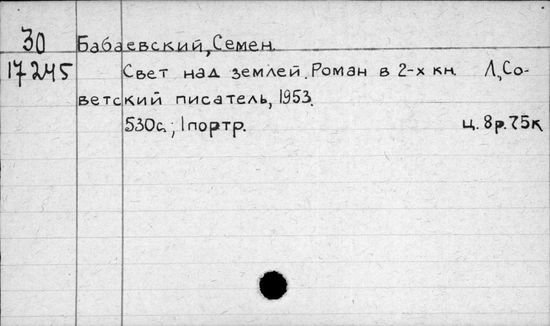 30 Бабаевский, Семен.
17245 Свет над землей. Роман в 2-х кн. Л, Со-
ветский писатель, 1953.
530с.; 1портр. ц. 8р. 75к